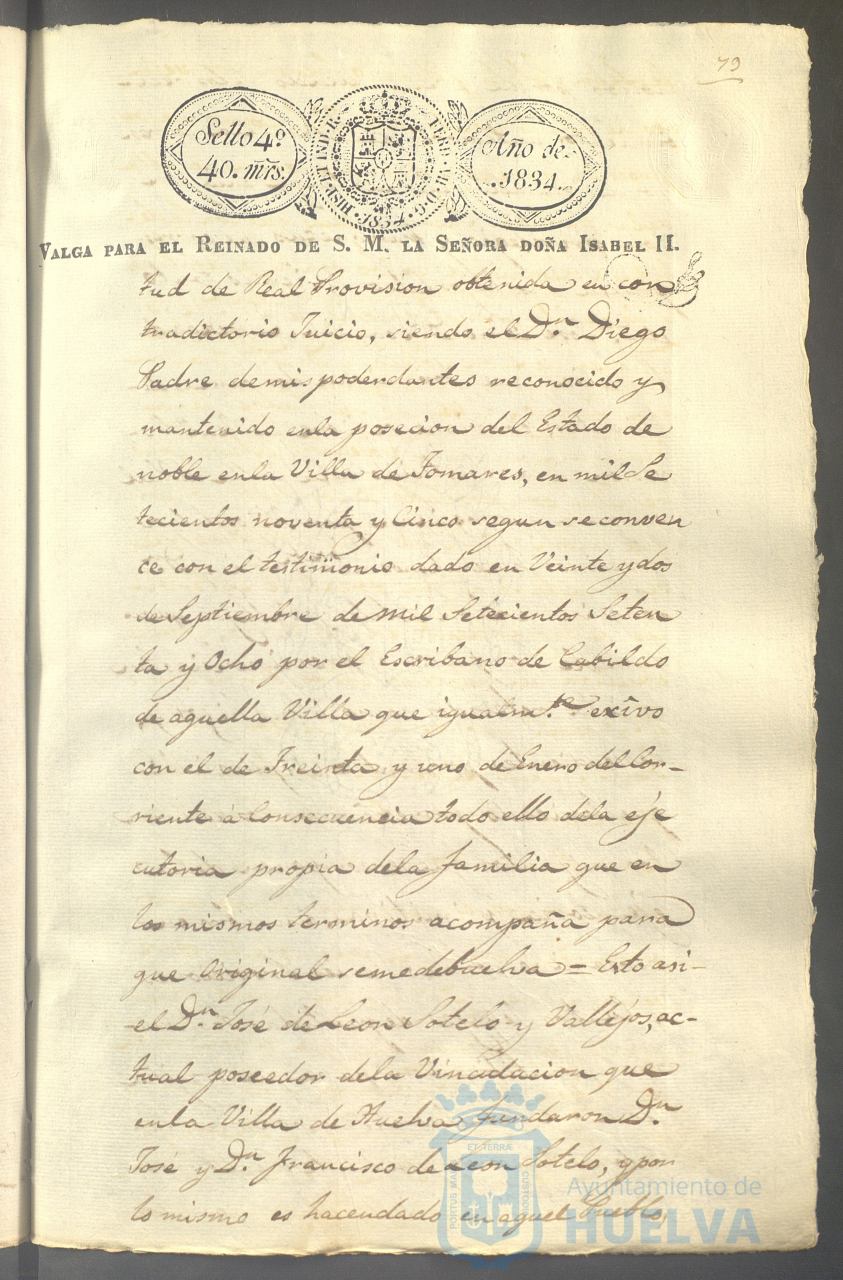 79
Sello 4º
40. mrs.
HISP. ET IND. R.
1834
Año de
1834.
VALGA PARA EL REINADO DE S. M. LA SEÑORA DOÑA ISABEL II.
tud de Real Provision obtenida en con
tradictorio Juicio, siendo el Dn. Diego
Padre de mis poderdantes reconocido y
mantenido en la posecion del Estado de
noble en la Villa de Tomares, en mil Se
tecientos noventa y Cinco segun se conven
ce con el testimonio dado en Veinte y dos
de Septiembre de mil Setecientos Seten
ta y Ocho por el Escribano de Cabildo
de aquella Villa que igualmte. exivo
con el de Treinta y uno de Enero del Cor-
riente á Consecuencia todo ello de la eje
cutoria propia de la familia que en
los mismos terminos acompaña para
que Original se me debuelva = Esto asi-
el Dn. José de Leon Sotelo y Vallejos, ac-
tual poseedor de la Vinculacion que
en la Villa de Huelva fundaron Dn.
José y Dn. Francisco de Leon Sotelo, y por
lo mismo es hacendado en aquel Pueblo,
PORTUS MARIS
ET TERRÆ
CUSTODIA
Ayuntamiento de
HUELVA